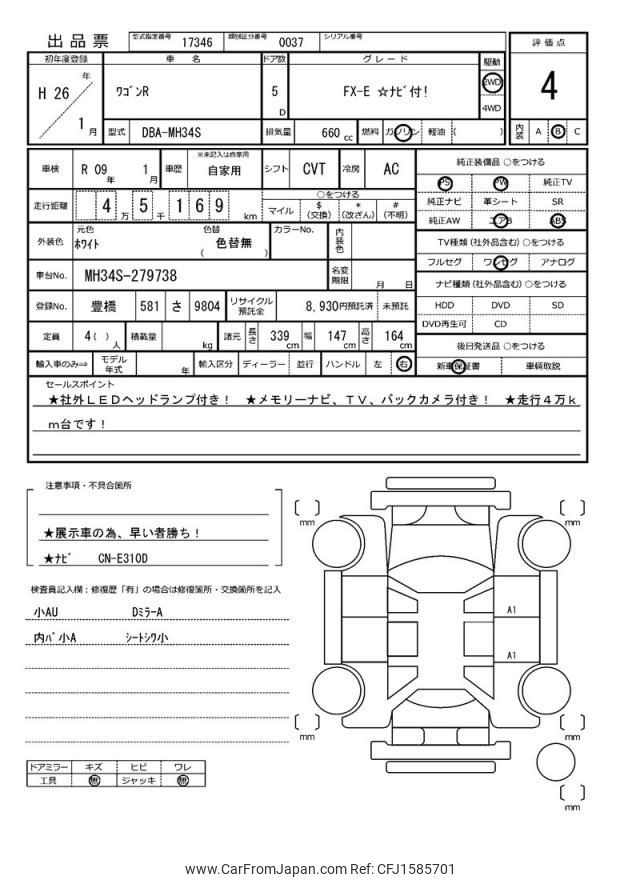 出品票 型式指定番号 17346 類別区分番号 0037 シリアル番号
評価点
4
内装 A B C
初年度登録 車名 ドア数 グレード 駆動
H 26 年 1 月
ワゴンR 5 D FX-E ☆ナビ付! 2WD
4WD
型式 DBA-MH34S 排気量 660 cc 燃料 ガソリン 軽油 ( )
車検 R 09 年 1 月 車歴 ※未記入は自家用 自家用 シフト CVT 冷房 AC
走行距離 4 万 5 千 1 6 9 km
○をつける
マイル $ (交換) * (改ざん) # (不明)
外装色 元色 ホワイト 色替 ( 色替無 ) カラーNo. 内装色
車台No. MH34S-279738 名変期限 月 日
登録No. 豊橋 581 さ 9804 リサイクル預託金 8,930円預託済 未預託
定員 4( ) 人 積載量 kg 諸元 長さ 339 cm 幅 147 cm 高さ 164 cm
輸入車のみ⇒ モデル年式 年 輸入区分 ディーラー 並行 ハンドル 左 右
純正装備品 ○をつける
PS PW 純正TV
純正ナビ 革シート SR
純正AW エアB ABS
TV種類(社外品含む) ○をつける
フルセグ ワンセグ アナログ
ナビ種類(社外品含む) ○をつける
HDD DVD SD
DVD再生可 CD
後日発送品 ○をつける
新車保証書 車輌取説
セールスポイント
★社外LEDヘッドランプ付き! ★メモリーナビ、TV、バックカメラ付き! ★走行4万k
m台です!
注意事項・不具合箇所
★展示車の為、早い者勝ち!
★ナビ CN-E310D
検査員記入欄：修復歴「有」の場合は修復箇所・交換箇所を記入
小AU DミラーA
内バ小A シートシワ小
ドアミラー キズ ヒビ ワレ
工具 無 ジャッキ 無
mm
mm
A1
A1
mm
mm
mm
www.CarFromJapan.com Ref: CFJ1585701